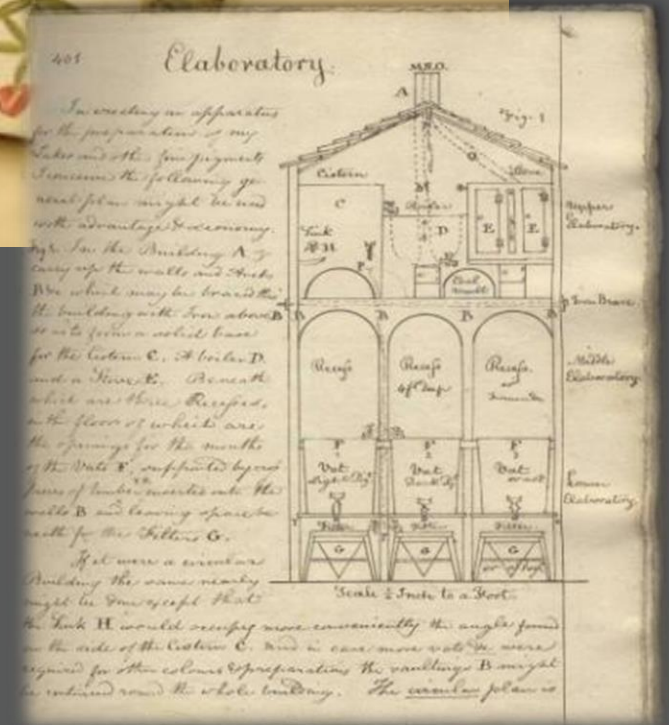 401
Elaboratory.
In erecting an apparatus
for the preparation of my
Lakes and other fine pigments
I conceive the following ge
neral plan might be used
with advantage & economy.
In the Building A
carry up the walls and
B which may be braced
the building with Iron above
so as to form a solid base
for the Cistern C. A boiler D
and a Stove E. Beneath
which are three Recesses,
on the floors of which are
the openings for the mouths
of the Vats F, supported by cross
pieces of timber inserted into the
walls B and leaving space be
neath for the Filters G.
If it were a circular
Building the same nearly
might be done except that
the Sink H would occupy more conveniently the angle formed
on the side of the Cistern C. and in case more vats &c were
required for other colours & preparations the vaultings B might
be continued round the whole building. The circular plan is
M.N.O.
A
Fig. 1
Cistern
Stove
C
M
Boiler
D
E
E
Sink
H
P
Coal
vault
Upper
Elaboratory.
Iron Brace.
B
B
B
B
B
Recess
Recess
4 ft deep
Recess
or
Middle
Elaboratory.
F
1
Vat
F
2
Vat
F
3
Vat
Lower
Elaboratory
Filter
Filter
Filter
G
G
G
Scale ½ Inch to a Foot.